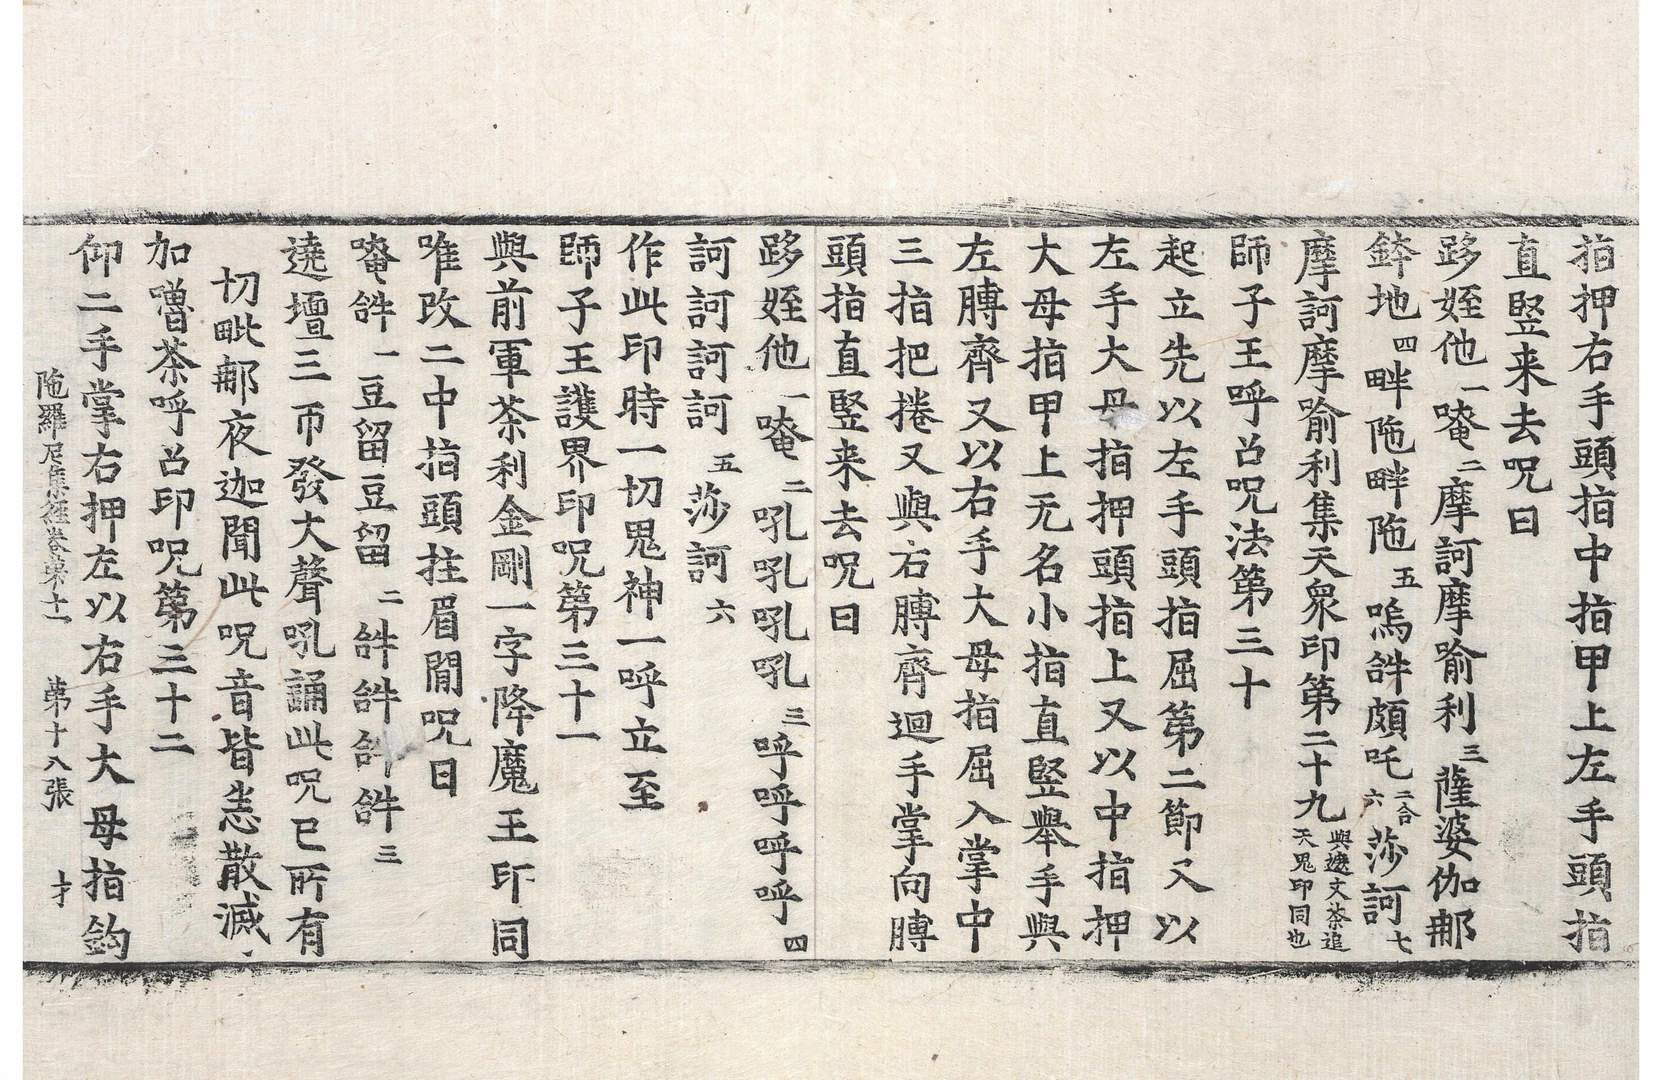 指押右手頭指中指甲上左手頭指
直竪来去呪曰
跢姪他一唵二摩訶摩喻利三薩婆伽鄁
鉢地四畔陁畔陁五嗚𤙖頗吒二合六莎訶七
摩訶摩喻利集天衆印第二十九與遮文茶追天鬼印同也
師子王呼召呪法第三十
起立先以左手頭指屈第二節又以
左手大母指押頭指上又以中指押
大母指甲上无名小指直竪舉手與
左膊齊又以右手大母指屈入掌中
三指把捲又與右膊齊迴手掌向膊
頭指直竪来去呪曰
跢姪他一唵二吼吼吼吼三呼呼呼呼四
訶訶訶訶五莎訶六
作此印時一切鬼神一呼立至
師子王護界印呪第三十一
與前軍茶利金剛一字降魔王印同
唯改二中指頭拄眉閒呪曰
唵𤙖一豆留豆留二𤙖𤙖𤙖𤙖三
遶壇三帀發大聲吼誦此呪已所有
切毗鄁夜迦聞此呪音皆悉散滅
加嚕茶呼召印呪第三十二
仰二手掌右押左以右手大母指鉤
陁羅尼集經卷第十一 第十八張 才